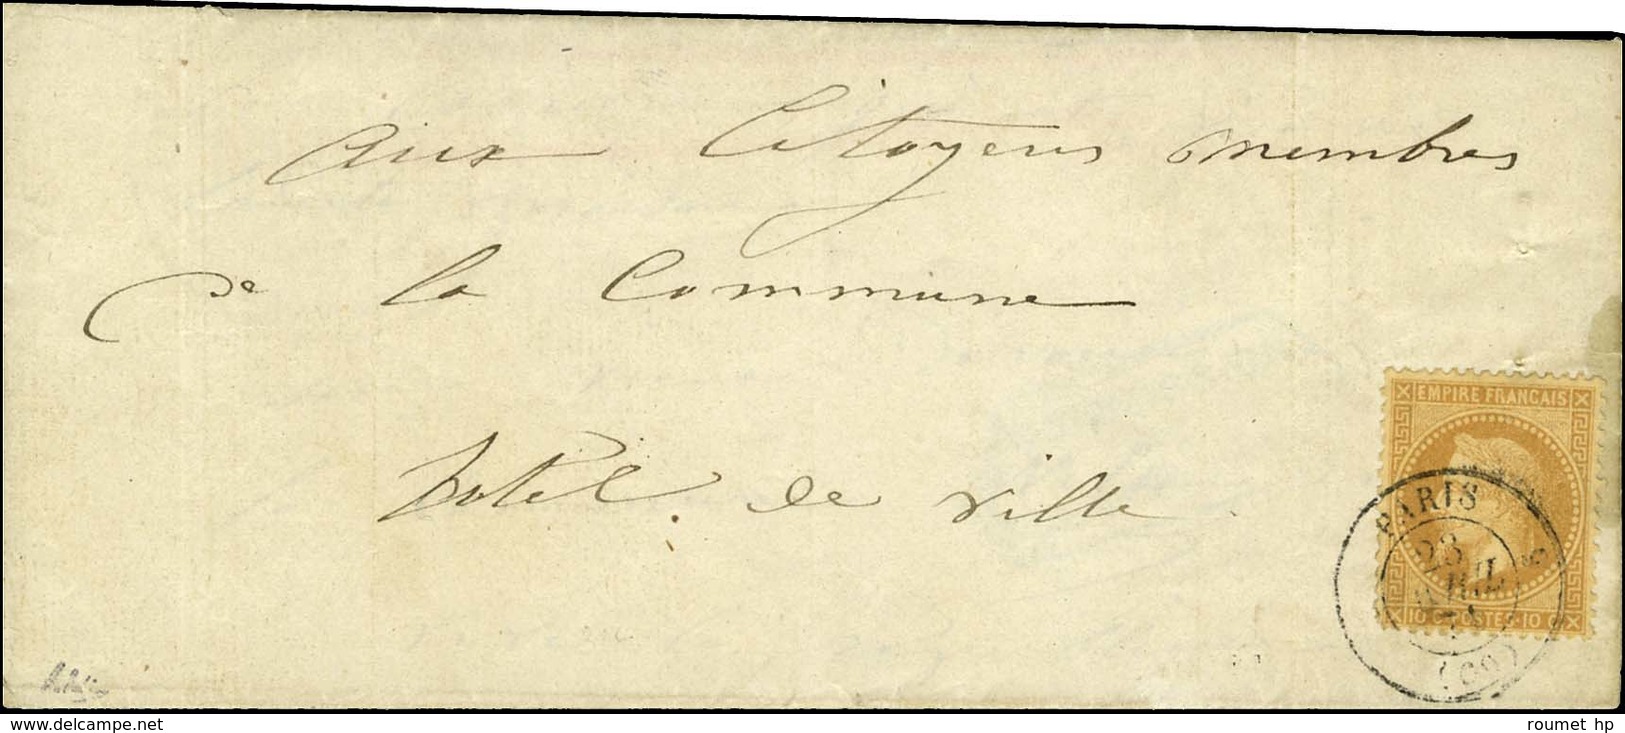 Aux Citoyens membres
de la Commune
hotel de ville
EMPIRE FRANÇAIS
10 C. POSTES. 10 C.
PARIS
28
AVRIL
71
(60)
delcampe.net
roumet hp